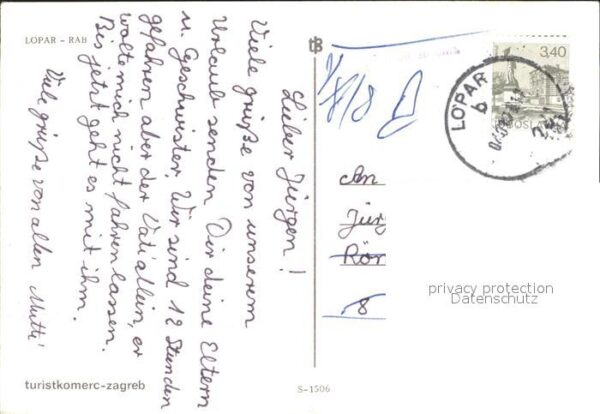 LOPAR - RAB
Lieber Jürgen!
Viele grüße von unserem
Urlaub senden Dir deine Eltern
u. Geschwister. Wir sind 12 Stunden
gefahren aber der Vati allein, er
wollte mich nicht fahren lassen.
Bis jetzt geht es mit ihm.
Viele grüße von allen Mutti!
turistkomerc-zagreb
S-1506
3,40
JUGOSLA
LOPAR
b
An
Jür
Rör
8
privacy protection
Datenschutz